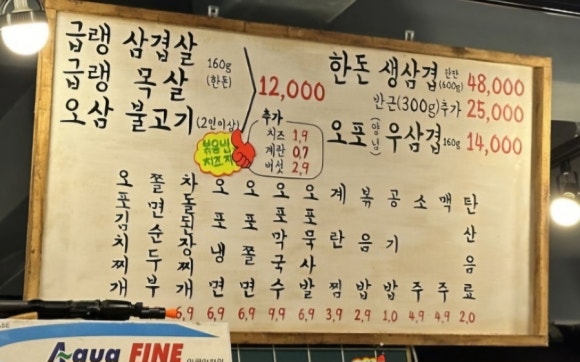 급랭 삼겹살
급랭 목살
오삼 불고기 (2인이상)
160g
(한돈)
12,000
한돈 생삼겹 (600g) 48,000
반근(300g)추가 25,000
오포(양념)우삼겹 160g 14,000
추가
치즈 1,9
계란 0,7
버섯 2,9
볶음밥
치즈
오포김치찌개
쫄면순두부
차돌된장찌개 6,9
오포냉면 6,9
오포쫄면 6,9
오포막국수 9,9
오포묵사발 6,9
계란찜 3,9
볶음밥 2,9
공기밥 1,0
소주 4,9
맥주 4,9
탄산음료 2,0
Aqua FINE